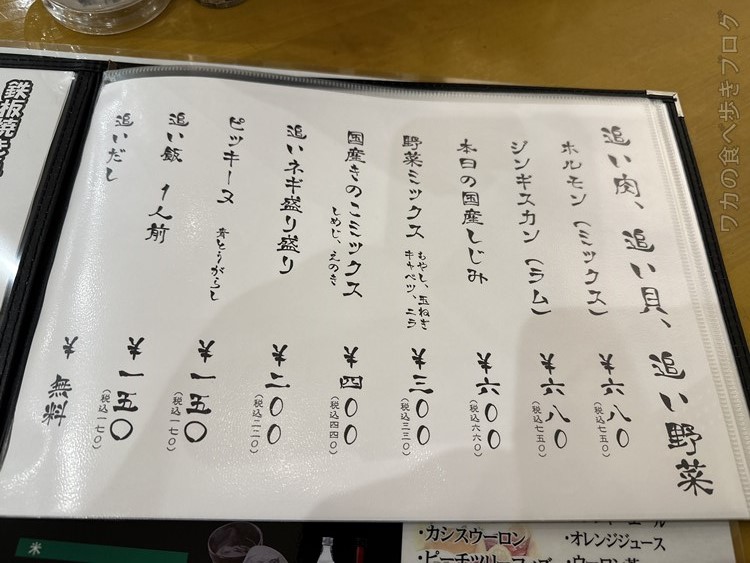 追い肉、追い貝、追い野菜
ホルモン（ミックス） ¥六八〇
（税込七五〇）
ジンギスカン（ラム） ¥六八〇
（税込七五〇）
本日の国産しじみ ¥六〇〇
（税込六六〇）
野菜ミックス
もやし、玉ねぎ
キャベツ、ニラ
¥三〇〇
（税込三三〇）
国産きのこミックス
しめじ、えのき
¥四〇〇
（税込四四〇）
追いネギ盛り盛り ¥二〇〇
（税込二二〇）
ピッキーヌ 青とうがらし ¥一五〇
（税込一七〇）
追い飯 1人前 ¥一五〇
（税込一七〇）
追いだし ¥無料
米
・カシスウーロン
・オレンジジュース
ワカの食べ歩きブログ